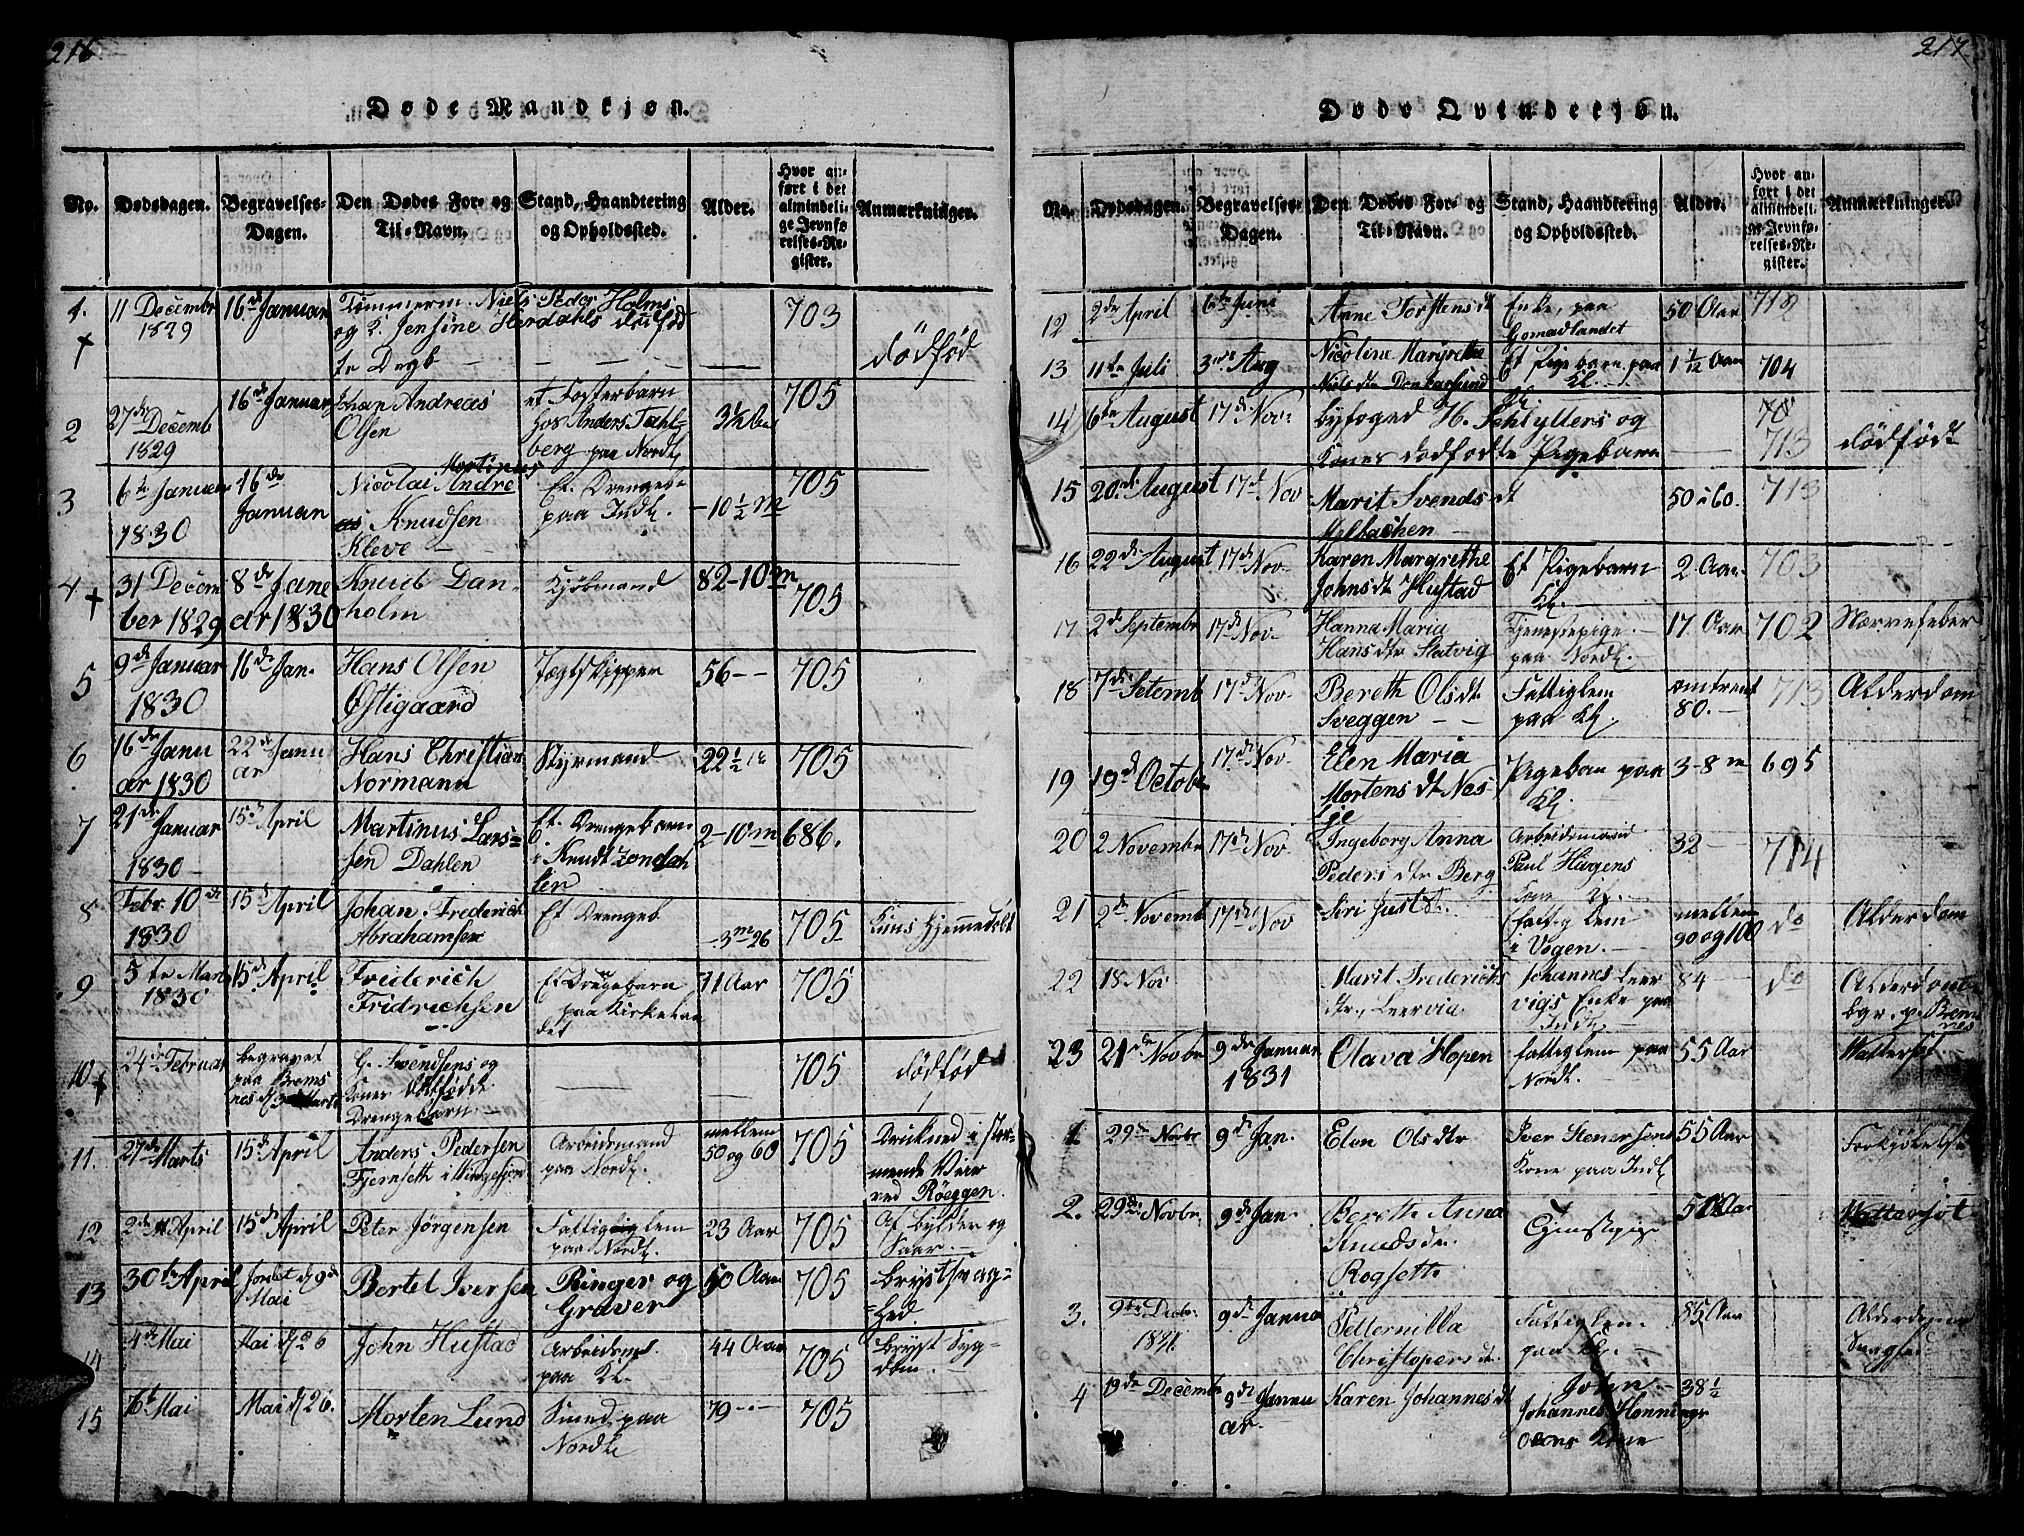 216
Døde Mandkjøn.
No. Dødsdagen. Begravelses-Dagen. Den Dødes For- og Til-Navn. Stand, Haandtering og Opholdssted. Alder. Hvor anført i det almindelige Jevnførelses-Register. Anmærkninger.
1. 11 Decembr 1829 16de Januar Tømmerm. Niels Peder Holms og Jensine Herdahls 703 dödfød
2 27de Decemb 1829 16de Januar Johan Andreas Olsen et Fosterbarn hos Anders Dahlberg paa Nordl. 3½ 705
3 6te Januar 1830 16de Januar Nicolai Martinus Andreas Knudsen Kleve Et Drengeb. paa Indl. 10½ m 705
4 31 December 1829 8de Janear 1830 Knud Danholm Kjöbmand 82-10m 705
5 9de Januar 1830 16de Jan. Hans Olsen Østigaard Jægtskipper 56-- 705
6 16de Januar 1830 22de Januar Hans Christian Normann Styrmand 22½ 705
7 21de Januar 1830 15de April Martinus Larssen Dahlen Et Drengebarn i 2-10m 686.
8 Febr. 10de 1830 15de April Johan Frederich Abrahamsen Et Drengeb 3m 26 705 Hjemmedøbt
9 5te Mar 1830 15de April Friderich Fridrichsen Et Drengebarn paa Kirkelandet 11 Aar 705
10 24de Februar begravet paa Bremsnes G. Svendsens og Kones dødfødte Drengebarn 705 dödfød
11. 27de Marts 15de April Anders Pedersen Fjernseth Arbeidsmand paa Nordl. mellem 50 og 60 705 Druknede i stormende Veir ved Röeggen.
12 2de April 15de April Peter Jörgensen Fattiglem paa Nordl. 23 Aar 705 Af bylder og Saar.
13 30te April Jordet d 9de Mai Bertel Iversen Ringer og Graver 50 Aar 705 Brystsvaghed.
14 4de Mai Mai d 26 John Hustad Arbeidsm. paa Kl. 44 Aar 705 Bryst Sygdom.
15 6te Mai Mai d 26. Morten Lund Smed paa Nordl 79 705
217
Døde Qvindekjøn.
No. Dødsdagen. Begravelses-Dagen. Den Dødes For- og Til-Navn. Stand, Haandtering og Opholdssted. Alder. Hvor anført i det almindelige Jevnførelses-Register. Anmærkninger.
12 2de April 6te Juni Anne Torstensdt Enke, paa Gomadlandet 50 Aar 712
13 11te Juli 3die Aug Nicoline Margrethe Nielsdtr Et Pigebarn paa Kl. 1 1/12 Aar 704
14 6te August 17de Nov. Byfoged H. Schlytters og Kones dødfødte Pigebarn 713 dödfödt
15 20de August 17de Nov Marit Svendsdt Melbachen 50 à 60. 713
16 22de August 17de Nov. Karen Margrethe Johnsdtr Hustad Et Pigebarn Kl. 2 Aar 703
17 2de Septembr 17de Nov. Hanna Maria Hansdtr Slatvig Tjenestepige paa Nordl. 17 Aar 702 Nervefeber
18 7de Setemb 17de Nov. Bereth Olsdt Sveggen Fattiglem paa Kl. omtrent 80. 713 Alderdom
19 19de Octobr 17de Nov. Elen Maria Mortensdt Pigeban paa Kl. 3-8m 695
20 2 Novembr 17de Nov. Ingeborg Anna Pedersdtr Berg Arbeidsmand Paul Hagens Kone 32 714
21 2de Novemb 17de Nov Siri Fattiglem i Vogen. mellem 90 og 100 do Alderdom
22 18 Nov Marit Frederichsdtr Leervig Johannes Leervigs Enke paa Indl. 84 do Alderdom bgr. p. Bremnes
23 21de Novbr 9de Januar 1831 Olava Hopen Fattiglem paa Nordl. 55 Aar Wattersot.
1. 29de Novbr 9de Jan. Elen Olsdtr Iver Stenersens Kone paa Indl 55 Aar Forkjølelse
2. 29de Novbr. 9de Jan. Bereth Anna Knudsdtr. Rogseth Tjenstepige Wattersot
3. 9de Decbr. 9de Janua Petternilla Christopersdt. Fattiglem paa Kl. 85 Aar
4 19de Decembr 9de Januar. Karen Johannesdt John Johannes Henningsøens Kone 38½